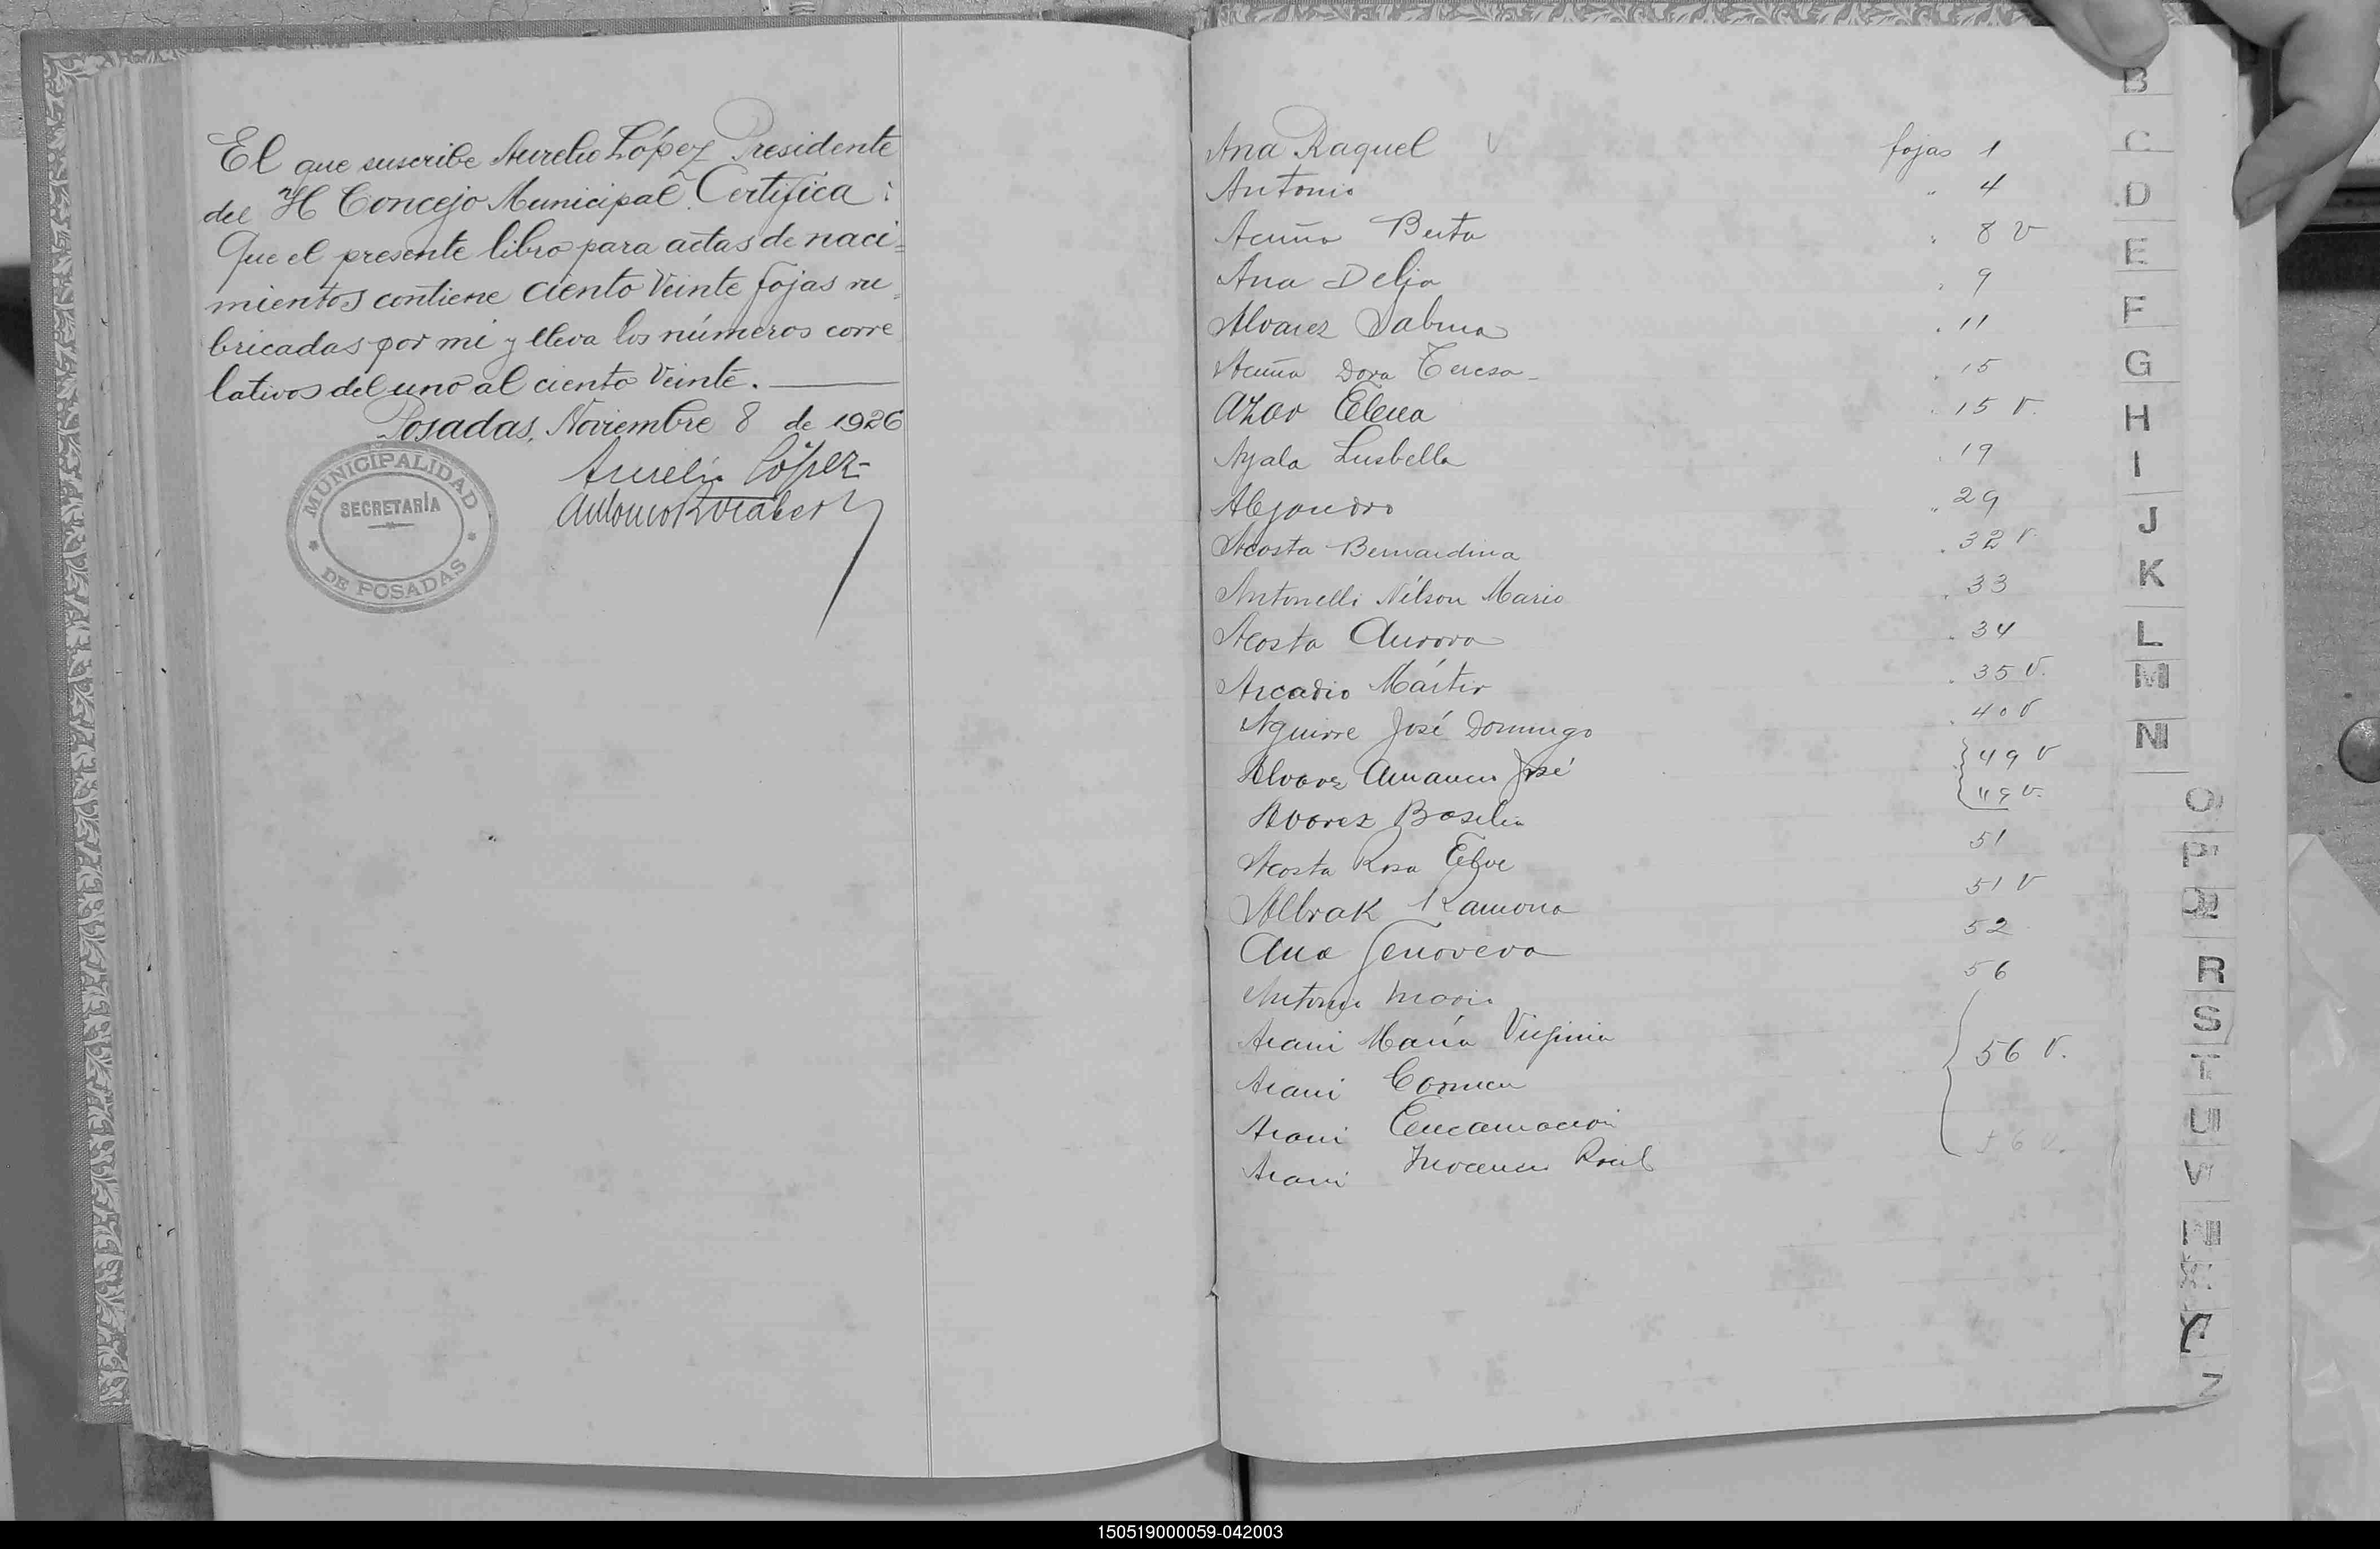 El que suscribe Aurelio López Presidente
del H Concejo Municipal. Certifica:
Que el presente libro para actas de naci=
mientos contiene ciento Veinte fojas ru=
bricadas por mi y lleva los números corre
lativos del uno al ciento Veinte.
Posadas, Noviembre 8 de 1926
Aurelio López
Antonio
MUNICIPALIDAD
SECRETARÍA
DE POSADAS
Ana Raquel V fojas 1
Antonio " 4
Acuña Berta " 8 v
Ana Delia " 9
Alvarez Sabina " 11
Acuña Dora Teresa " 15
Azar Elena " 15 v.
Ayala Lusbella " 19
Alejandro " 29
Acosta Bernardina " 32 v.
Antonelli Nélson Mario " 33
Acosta Aurora " 34
Arcadio Mártir " 35 v.
Aguirre José Domingo " 40 v
Alvarez José 49 v
Alvarez Basilia 49 v.
Acosta Rosa 51
Albrak Ramona 51 v
Ana Genoveva 52
Antonio Mario 56
María Virginia
Carmen 56 v.
Encarnación
Raúl 56 v.
B
C
D
E
F
G
H
I
J
K
L
M
N
O
P
Q
R
S
T
U
V
Y
Z
150519000059-042003